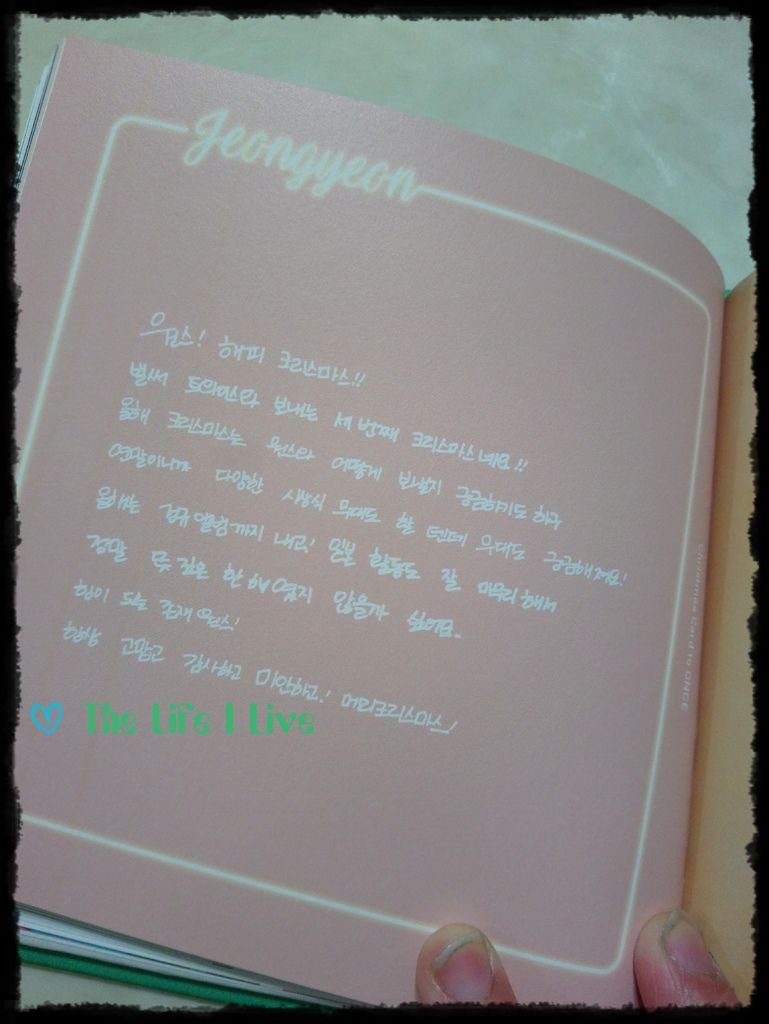 Jeongyeon
원스! 해피 크리스마스!!
벌써 트와이스와 보내는 세 번째 크리스마스네요!!
올해 크리스마스는 원스와 어떻게 보낼지 궁금하기도 하구
연말이니까 다양한 시상식 무대도 할 텐데 무대도 궁금해져요!
올해는 정규앨범까지 내고! 일본 활동도 잘 마무리해서
정말 뜻 깊은 한 해였지 않을까 싶어요.
힘이 되는 존재 원스!
항상 고맙고 감사하고 미안하고! 메리크리스마스!
Christmas Card to ONCE
The Life I Live